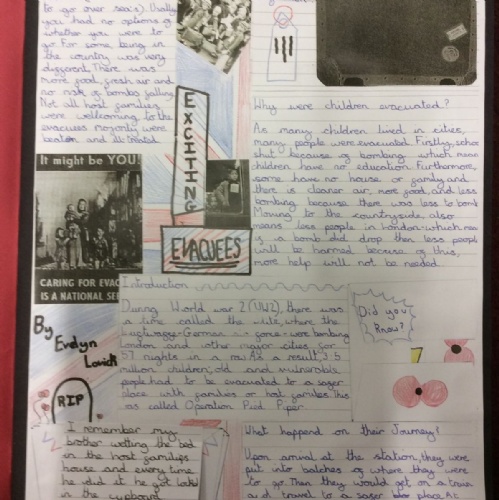 to go over sea's). Usually
you had no options of
whether you were to
go. For some, being in
the country was very
different. There was
more food, fresh air and
no risk of bombs falling.
Not all host families
were welcoming to the
evacuees many were
beaten and ill-treated.
It might be YOU!
CARING FOR EVAC
IS A NATIONAL SE
EXCITING
EVAQUEES
Why were children evacuated?
As many children lived in cities,
many people were evacuated. Firstly, schools
shut because of bombing which mean
children have no education. Furthermore,
some have no house or family and
there is cleaner air, more food, and less
bombing because there was less to bomb
Moving to the countryside, also
means less people in london which mea
if a bomb did drop then less people
will be harmed because of this,
more help will not be needed.
Introduction
During World war 2 (WW2), there was
a time called the blitz, where the
German were bombing
London and other major cities for
57 nights in a row. As a result, 3.5
million children, old and vulnerable
people had to be evacuated to a safer
place with families or host families. This
was called Operation Pied Piper
Did you
know?
By
Evelyn
RIP
I remember my
brother wetting the bed
in the host familys
house and every time
he did it he got locked
in the cupboard
What happend on their Journey?
Upon arrival at the station, they were
put into batches of where they were
to go. Then they would get on a train
and travel to a safer place. At